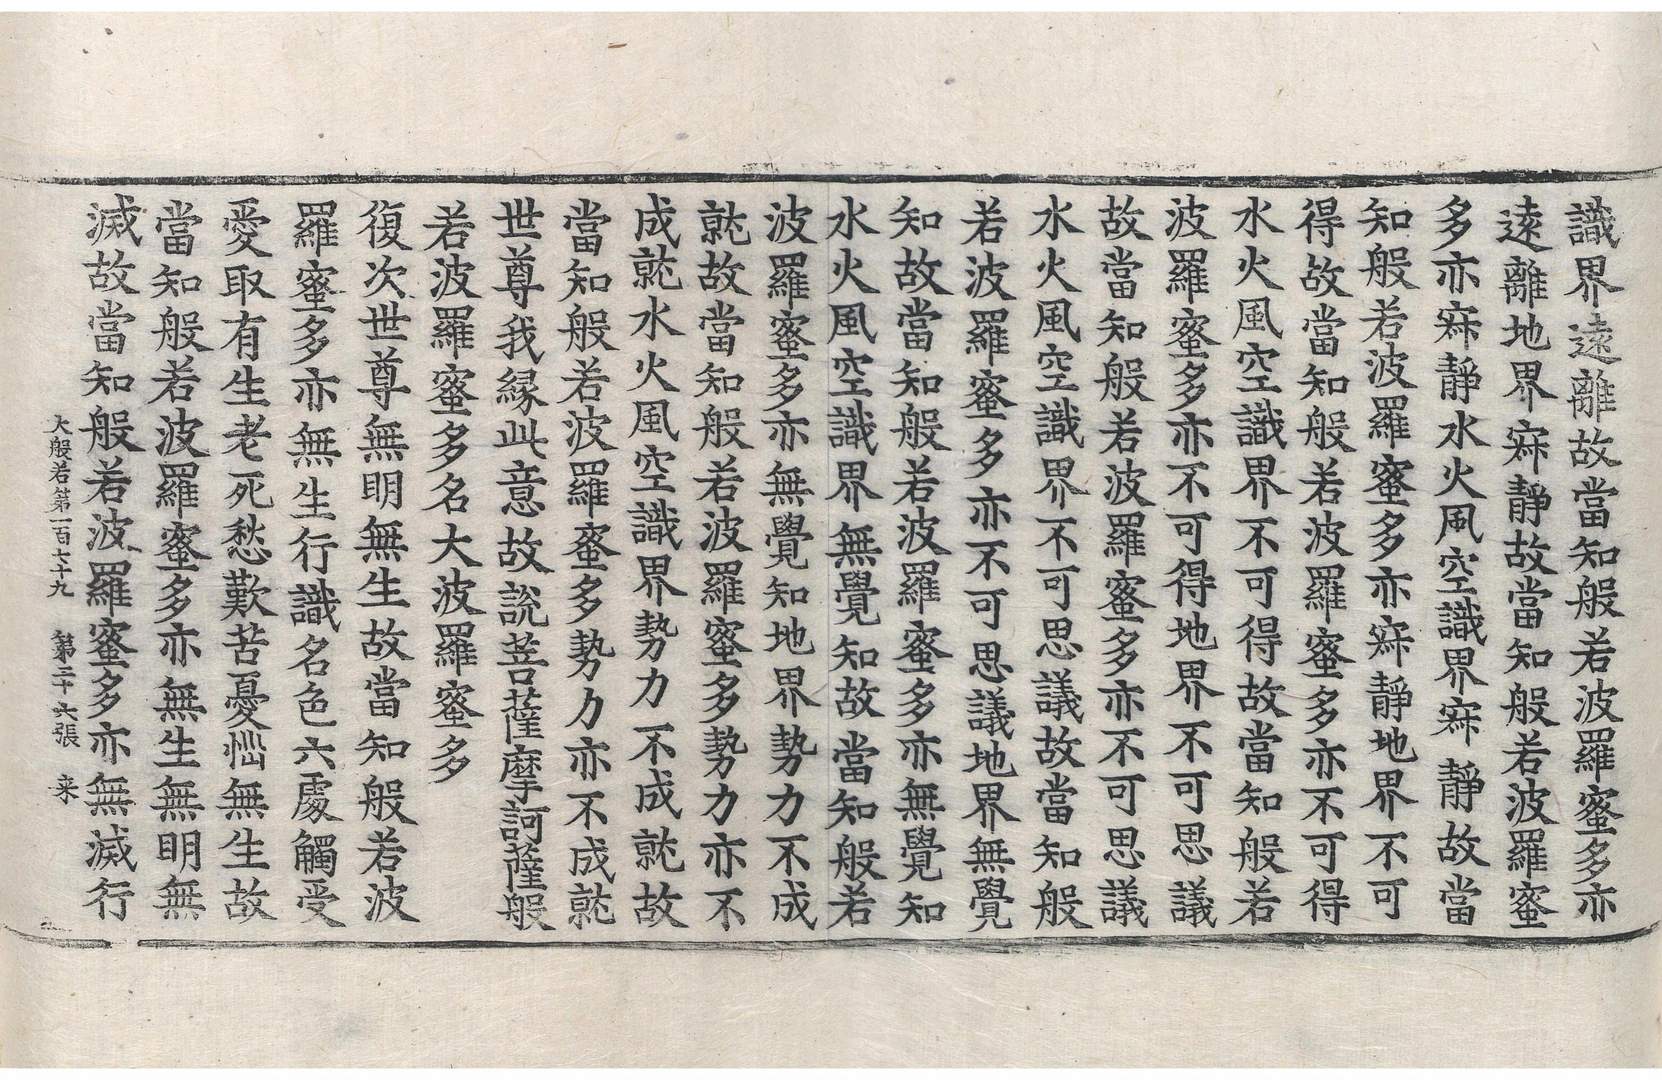 識界遠離故當知般若波羅蜜多亦
遠離地界寂静故當知般若波羅蜜
多亦寂静水火風空識界寂静故當
知般若波羅蜜多亦寂静地界不可
得故當知般若波羅蜜多亦不可得
水火風空識界不可得故當知般若
波羅蜜多亦不可得地界不可思議
故當知般若波羅蜜多亦不可思議
水火風空識界不可思議故當知般
若波羅蜜多亦不可思議地界無覺
知故當知般若波羅蜜多亦無覺知
水火風空識界無覺知故當知般若
波羅蜜多亦無覺知地界勢力不成
就故當知般若波羅蜜多勢力亦不
成就水火風空識界勢力不成就故
當知般若波羅蜜多勢力亦不成就
世尊我縁此意故說菩薩摩訶薩般
若波羅蜜多名大波羅蜜多
復次世尊無明無生故當知般若波
羅蜜多亦無生行識名色六處觸受
愛取有生老死愁歎苦憂惱無生故
當知般若波羅蜜多亦無生無明無
滅故當知般若波羅蜜多亦無滅行
大般若第一百七十九 第二十六張 来